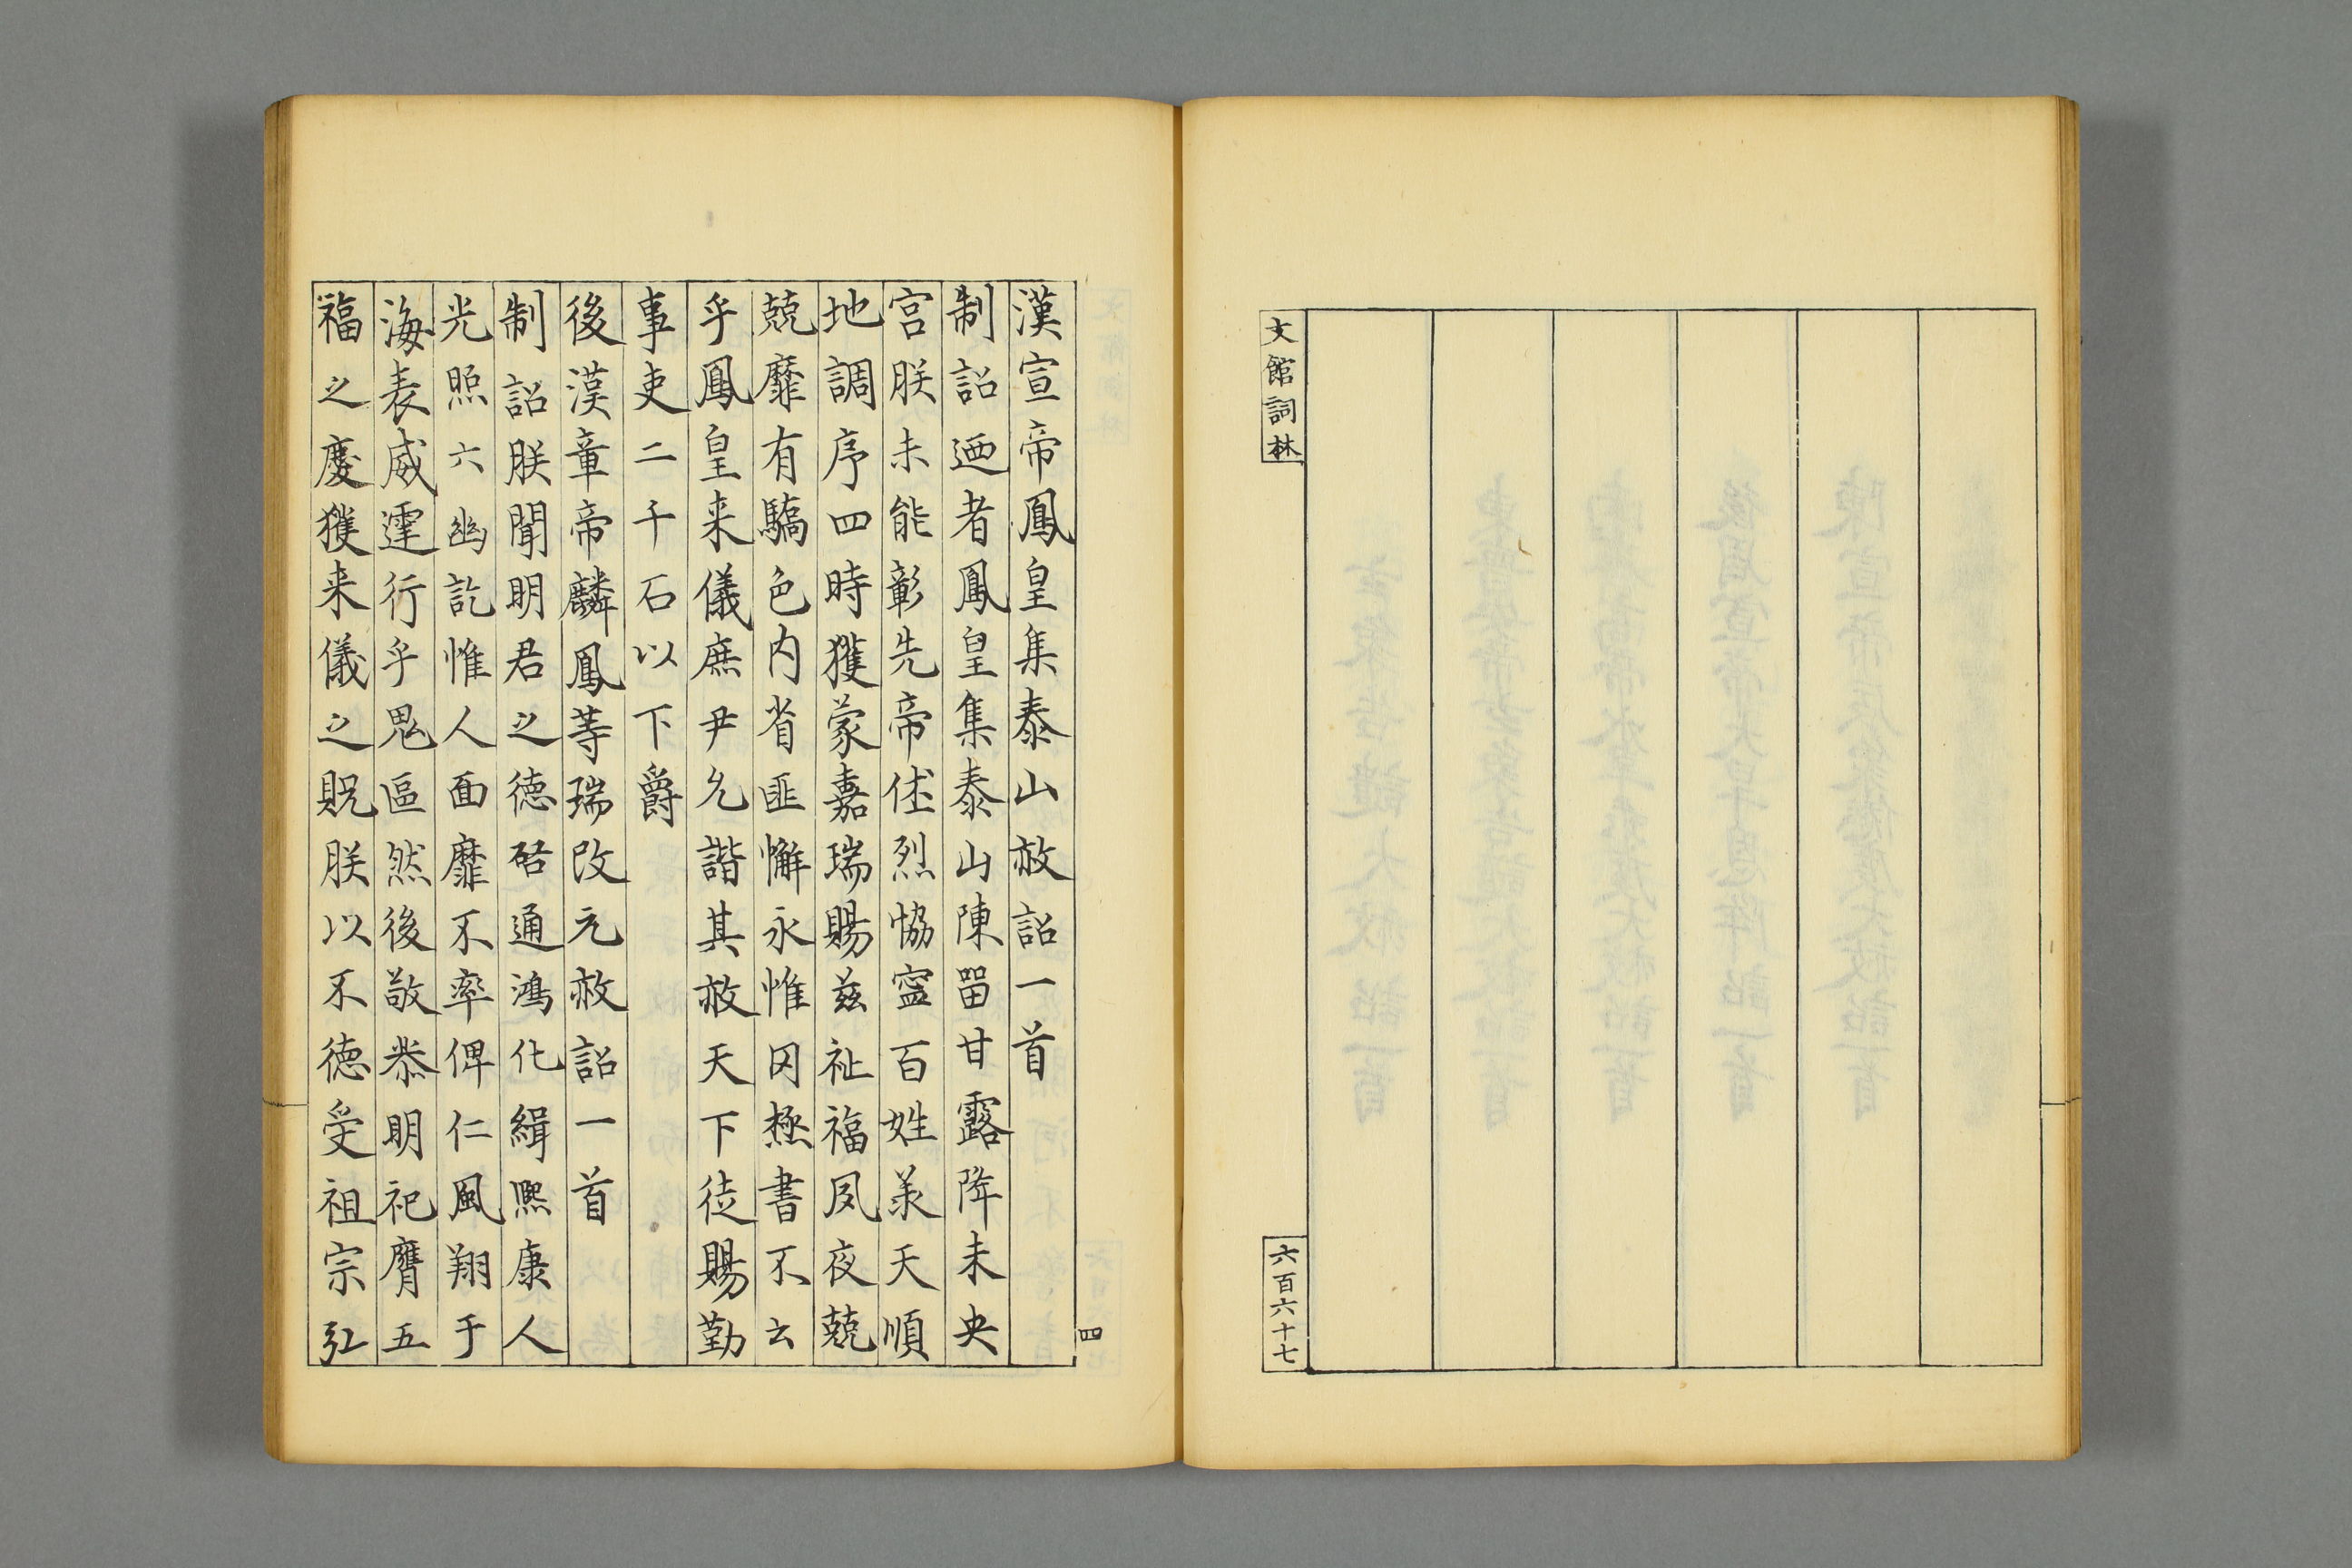 文館詞林
六百六十七
四
漢宣帝鳳皇集泰山赦詔一首
制詔迺者鳳皇集泰山陳畱甘露降未央
宮朕未能彰先帝休烈恊寍百姓羕天順
地調序四時獲蒙嘉瑞賜兹祉福夙夜兢
兢靡有驕色内省匪懈永惟罔極書不云
乎鳳皇来儀庶尹允諧其赦天下徒賜勤
事吏二千石以下爵
後漢章帝麟鳳等瑞改元赦詔一首
制詔朕聞明君之德啓通鴻化緝熙康人
光照六幽訖惟人面靡不率俾仁風翔于
海表威霆行乎鬼區然後敬恭明祀膺五
福之慶獲来儀之貺朕以不德受祖宗弘